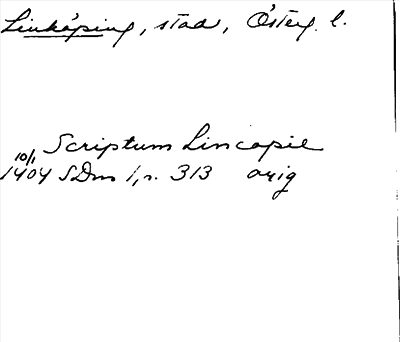 Linköping, stad, Österg. l.
Scriptum Lincopie
10/1
1404 SDns 1, s. 313 orig